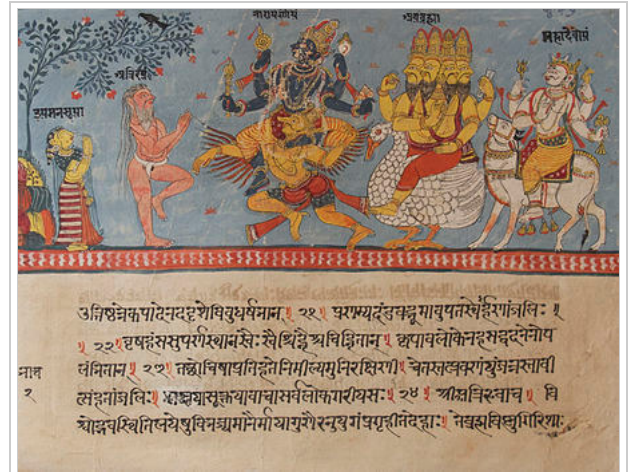 नारायणोयं
उत्तिष्ठन्नेकपादेनददृशेविबुधर्षभान् ॥ २१ ॥ प्रणम्यदंडवद्भूमावुपतस्थेर्हणांजलिः ॥
॥ २२ ॥ वृषहंससुपर्णस्थान्स्वैः स्वैश्चिह्नैश्चचिह्नितान् ॥ कृपावलोकेनहसद्वदनेनोप
लंभितान् ॥ २३ ॥ तद्रोचिषाप्रतिहतेनिमील्यमुनिरक्षिणी ॥ चेतस्तत्प्रवणंयुंजन्नस्तावी
त्संहतांजलिः ॥ श्लक्ष्णयासूक्तयावाचासर्वलोकगरीयसः ॥ २४ ॥ श्रीअत्रिरुवाच ॥ वि
श्वोद्भवस्थितिलयेषुविभज्यमानैर्मायागुणैरनुयुगं गृहीतदेहाः ॥ तेब्रह्मविष्णुगिरिशाः